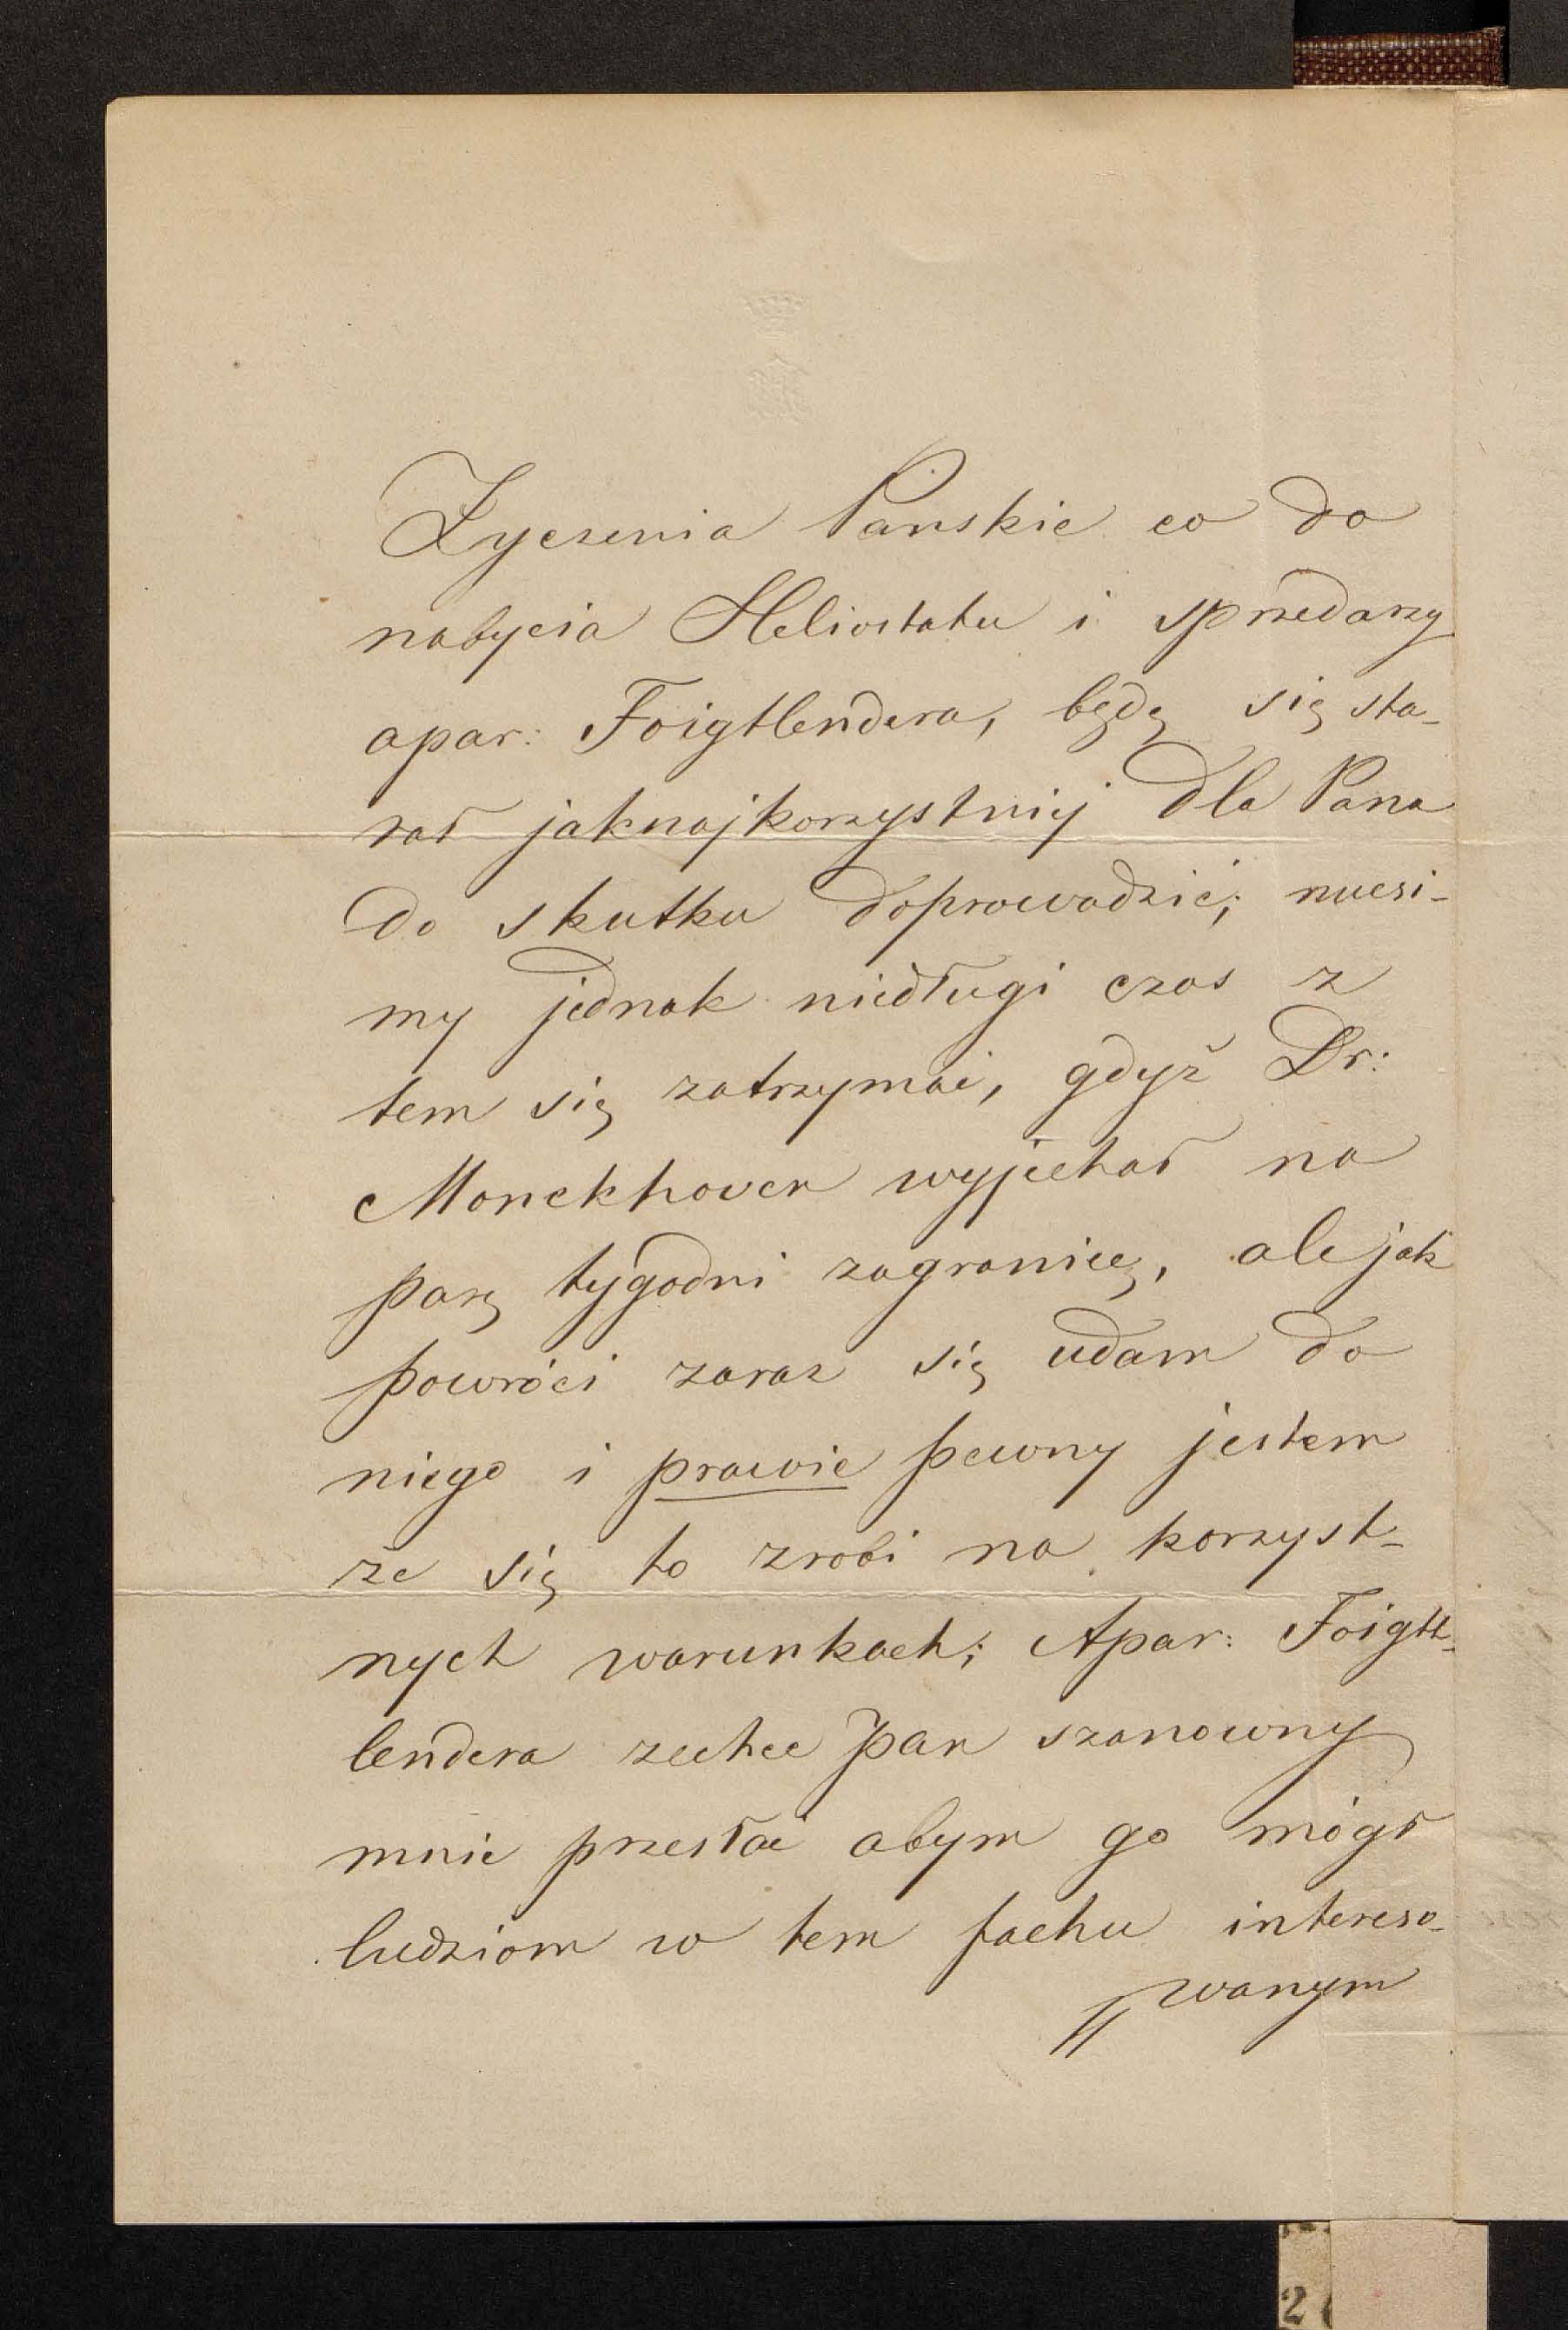 Życzenia Pańskie co do
nabycia Heliostatu i sprzedarzy
apar: Foigtlendera, będę się sta-
rał jaknajkorzystniej dla Pana
do skutku doprowadzić; musi-
my jednak niedługi czas z
tem się zatrzymać, gdyż Dr:
Monckhoven wyjechał na
parę tygodni zagranicę, ale jak
powróci zaraz się udam do
niego i prawie pewny jestem
że się to zrobi na korzyst-
nych warunkach; Apar: Foigtt-
lendera zechce pan szanowny
mnie przesłać abym go mógł
ludziom w tem fachu intereso-
wanym
2